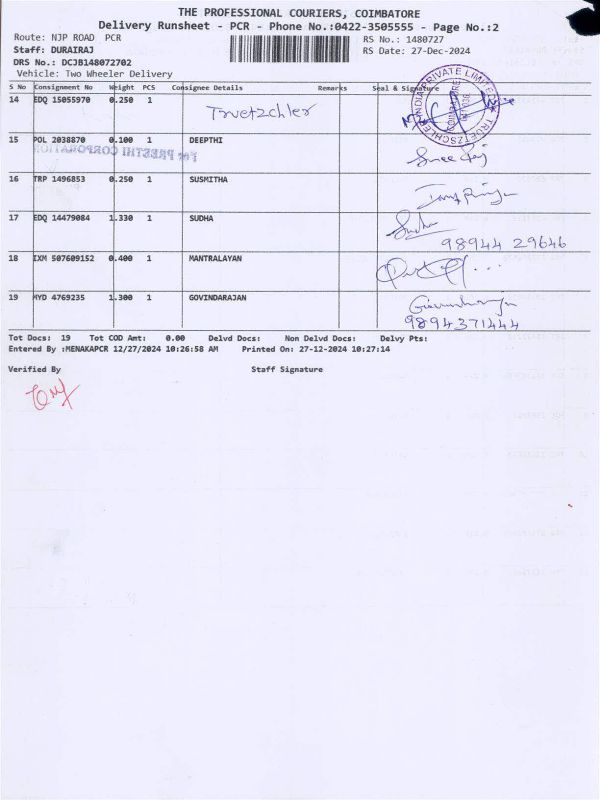 THE PROFESSIONAL COURIERS, COIMBATORE
Delivery Runsheet - PCR - Phone No.:0422-3505555 - Page No.:2
Route: NJP ROAD PCR RS No.: 1480727
Staff: DURAIRAJ RS Date: 27-Dec-2024
DRS No.: DCJB148072702
Vehicle: Two Wheeler Delivery
S No Consignment No Weight PCS Consignee Details Remarks Seal & Signature
14 EDQ 15055970 0.250 1 Truetzchler
15 POL 2038870 0.100 1 DEEPTHI
For PREETHI CORPORATION
16 TRP 1496853 0.250 1 SUSMITHA
17 EDQ 14479084 1.330 1 SUDHA Sudha
98944 29646
18 IXM 507609152 0.400 1 MANTRALAYAN
19 MYD 4769235 1.300 1 GOVINDARAJAN
9894371444
Tot Docs: 19 Tot COD Amt: 0.00 Delvd Docs: Non Delvd Docs: Delvy Pts:
Entered By :MENAKAPCR 12/27/2024 10:26:58 AM Printed On: 27-12-2024 10:27:14
Verified By Staff Signature